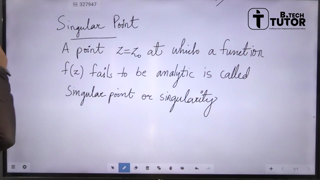 327947
B.TECH
TUTOR
Singular Point
A point z=z₀ at which a function
f(z) fails to be analytic is called
Singular point or singularity